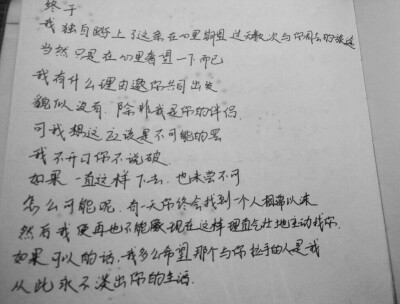 终于
我独自踏上了这条在心里期盼过无数次与你同去的旅途
当然只是在心里奢望一下而已
我有什么理由邀你共同出发
貌似没有.除非我是你的伴侣.
可我想这应该是不可能的罢
我不开口你不说破.
如果一直这样下去.也未尝不可
怎么可能呢.有一天你终会找到一个人相濡以沫
然后我便再也不能像现在这样理直气壮地主动找你.
如果可以的话.我多么希望那个与你松手的人是我
从此永不淡出你的生活.